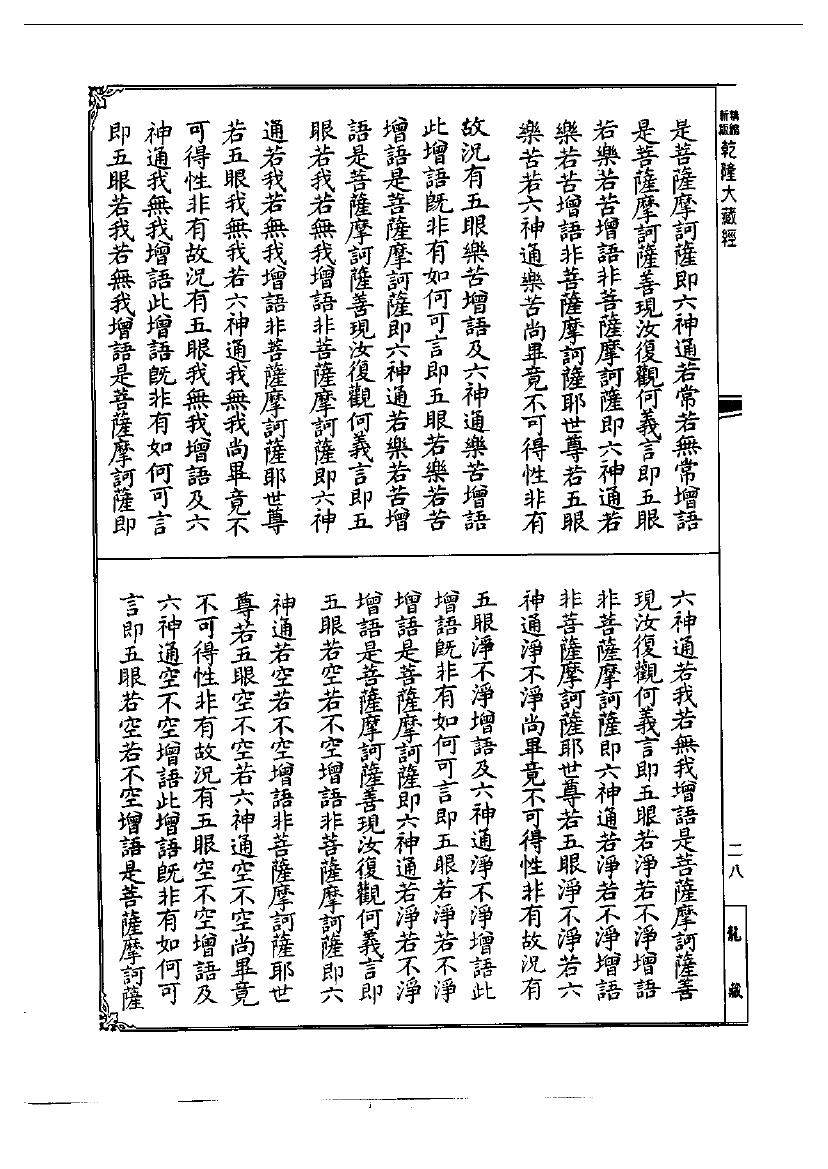 乾隆大藏經
是菩薩摩訶薩即六神通若常若無常增語
是菩薩摩訶薩善現汝復觀何義言即五眼
若樂若苦增語非菩薩摩訶薩即六神通若
樂若苦增語非菩薩摩訶薩耶世尊若五眼
樂苦若六神通樂苦尚畢竟不可得性非有
故況有五眼樂苦增語及六神通樂苦增語
此增語既非有如何可言即五眼若樂若苦
增語是菩薩摩訶薩即六神通若樂若苦增
語是菩薩摩訶薩善現汝復觀何義言即五
眼若我若無我增語非菩薩摩訶薩即六神
通若我若無我增語非菩薩摩訶薩耶世尊
若五眼我無我若六神通我無我尚畢竟不
可得性非有故況有五眼我無我增語及六
神通我無我增語此增語既非有如何可言
即五眼若我若無我增語是菩薩摩訶薩即
六神通若我若無我增語是菩薩摩訶薩善
現汝復觀何義言即五眼若淨若不淨增語
非菩薩摩訶薩即六神通若淨若不淨增語
非菩薩摩訶薩耶世尊若五眼淨不淨若六
神通淨不淨尚畢竟不可得性非有故況有
五眼淨不淨增語及六神通淨不淨增語此
增語既非有如何可言即五眼若淨若不淨
增語是菩薩摩訶薩即六神通若淨若不淨
增語是菩薩摩訶薩善現汝復觀何義言即
五眼若空若不空增語非菩薩摩訶薩即六
神通若空若不空增語非菩薩摩訶薩耶世
尊若五眼空不空若六神通空不空尚畢竟
不可得性非有故況有五眼空不空增語及
六神通空不空增語此增語既非有如何可
言即五眼若空若不空增語是菩薩摩訶薩
二八
龍藏